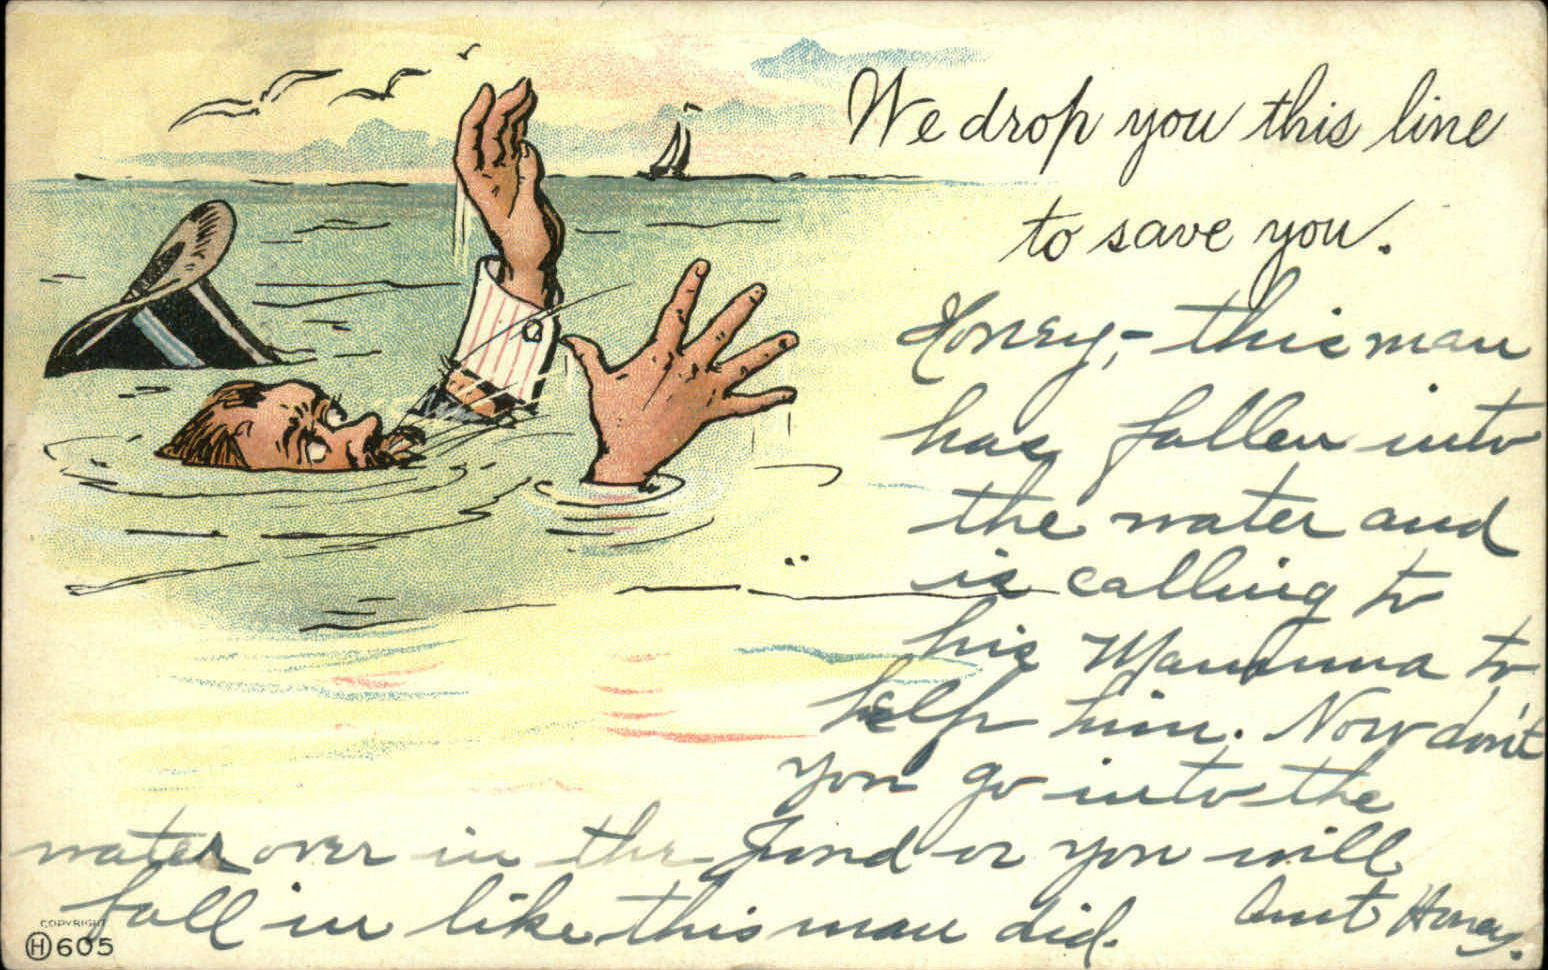 We drop you this line
to save you.
Honey,- this man
has fallen into
the water and
is calling to
his Mamma to
help him. Now don't
you go into the
water over in the Jond or you will
fall in like this man did.
Aunt Honey.
COPYRIGHT
H 605